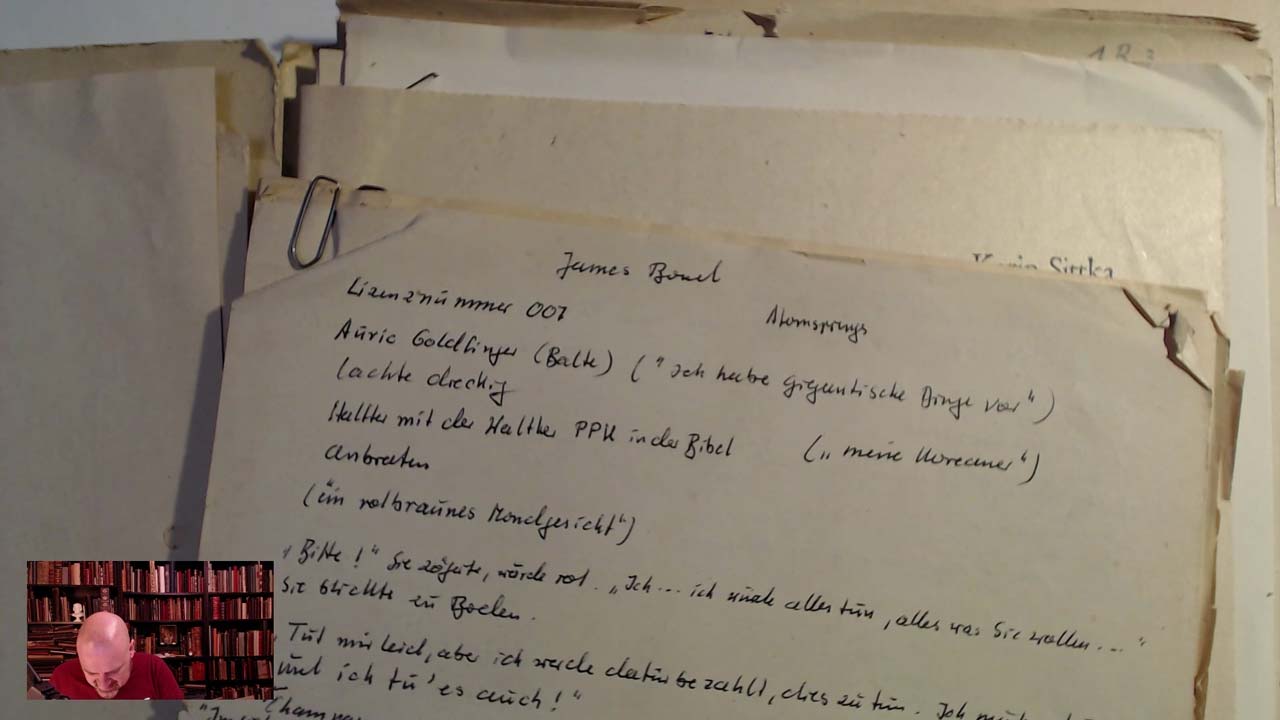 183
Karin Sittka
James Bond
Lizenznummer 007
Atomsprengs
Auric Goldfinger (Balte) ("Ich habe gigantische Dinge vor")
lachte dreckig
Halfter mit der Walther PPK in der Bibel („meine Koreaner")
anbraten
("ein rotbraunes Mondgesicht")
„Bitte!" Sie zögerte, würde rot. „Ich... ich würde alles tun, alles was Sie wollen..."
Sie blickte zu Boden.
„Tut mir leid, aber ich werde dafür bezahlt, dies zu tun. Ich
und ich tu' es auch!"